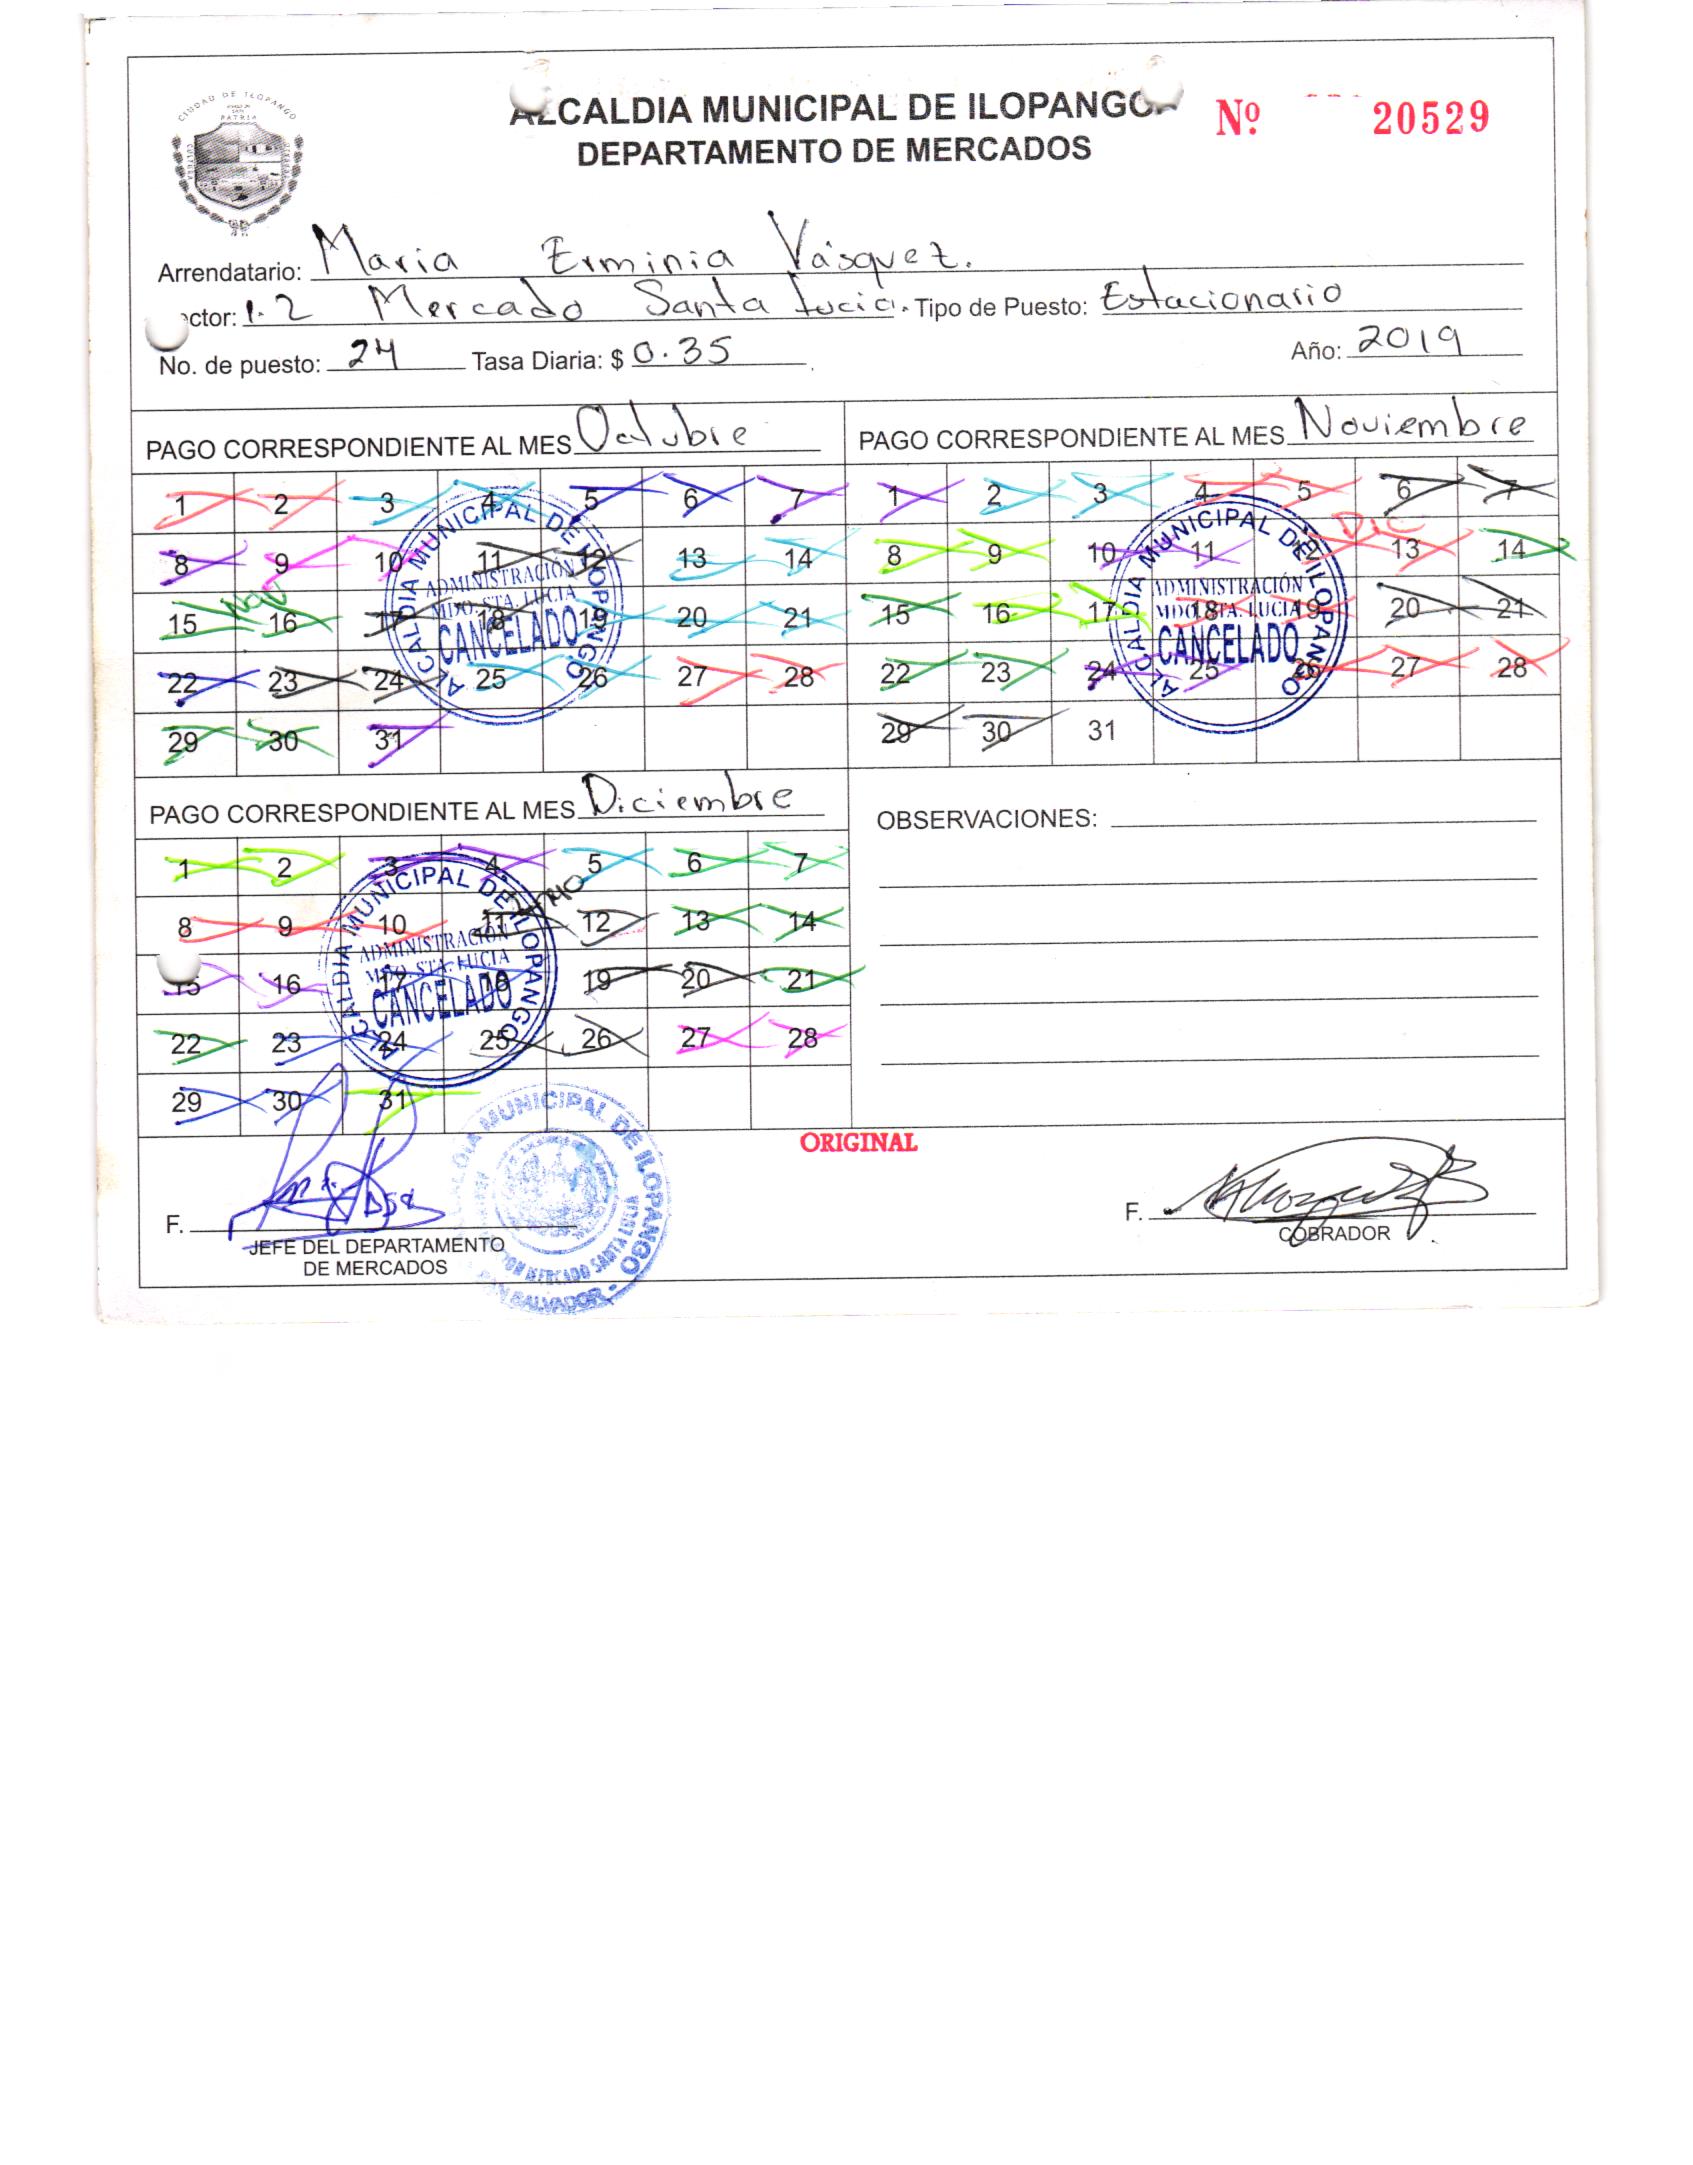 CIUDAD DE ILOPANGO
PATRIA
CULTURA
ALCALDIA MUNICIPAL DE ILOPANGO
Nº 20529
DEPARTAMENTO DE MERCADOS
Arrendatario: Maria Erminia Vásquez.
ctor: 1.2 Mercado Santa Lucia. Tipo de Puesto: Estacionario
No. de puesto: 24 Tasa Diaria: $ 0.35 Año: 2019
PAGO CORRESPONDIENTE AL MES Octubre
1 2 3 4 5 6 7
8 9 10 11 12 13 14
Nov
15 16 17 18 19 20 21
22 23 24 25 26 27 28
29 30 31
ALCALDIA MUNICIPAL DE ILOPANGO
ADMINISTRACIÓN
MDO. STA. LUCIA
CANCELADO
PAGO CORRESPONDIENTE AL MES Noviembre
1 2 3 4 5 6 7
Dic
8 9 10 11 12 13 14
15 16 17 18 19 20 21
22 23 24 25 26 27 28
29 30 31
ALCALDIA MUNICIPAL DE ILOPANGO
ADMINISTRACIÓN
MDO. STA. LUCIA
CANCELADO
PAGO CORRESPONDIENTE AL MES Diciembre
1 2 3 4 5 6 7
8 9 10 11 12 13 14
15 16 17 18 19 20 21
22 23 24 25 26 27 28
29 30 31
ALCALDIA MUNICIPAL DE ILOPANGO
ADMINISTRACIÓN
MDO. STA. LUCIA
CANCELADO
OBSERVACIONES:
ORIGINAL
F.
JEFE DEL DEPARTAMENTO
DE MERCADOS
MUNICIPAL DE ILOPANGO
MERCADO SANTA LUCIA
SALVADOR
F.
COBRADOR